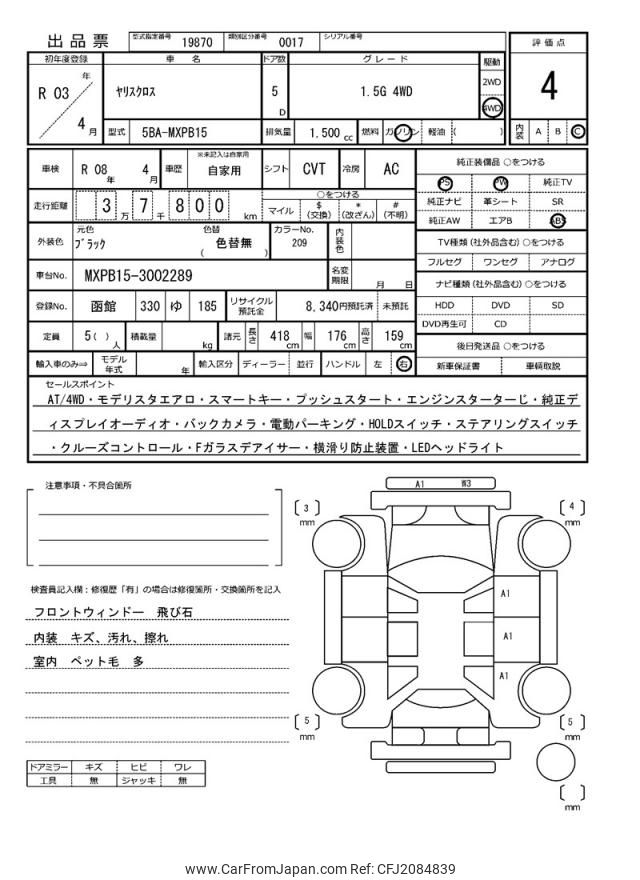 出品票 型式指定番号 19870 類別区分番号 0017 シリアル番号
評価点
初年度登録 車名 ドア数 グレード 駆動
R 03 年 4 月 ヤリスクロス 5 D 1.5G 4WD 2WD 4WD
4
型式 5BA-MXPB15 排気量 1.500 cc 燃料 ガソリン 軽油 ( )
内装 A B C
車検 R 08 年 4 月 車歴 ※未記入は自家用 自家用 シフト CVT 冷房 AC
純正装備品 ○をつける
PS PW 純正TV
純正ナビ 革シート SR
純正AW エアB ABS
走行距離 3 万 7 千 8 0 0 km
○をつける
マイル $ (交換) * (改ざん) # (不明)
外装色 元色 ブラック 色替 ( 色替無 ) カラーNo. 209 内装色
TV種類 (社外品含む) ○をつける
フルセグ ワンセグ アナログ
車台No. MXPB15-3002289 名変期限 月 日
ナビ種類 (社外品含む) ○をつける
登録No. 函館 330 ゆ 185 リサイクル預託金 8,340円預託済 未預託
HDD DVD SD
DVD再生可 CD
定員 5( ) 人 積載量 kg 諸元 長さ 418 cm 幅 176 cm 高さ 159 cm
後日発送品 ○をつける
輸入車のみ⇒ モデル年式 年 輸入区分 ディーラー 並行 ハンドル 左 右
新車保証書 車輌取説
セールスポイント
AT/4WD・モデリスタエアロ・スマートキー・プッシュスタート・エンジンスターターじ・純正デ
ィスプレイオーディオ・バックカメラ・電動パーキング・HOLDスイッチ・ステアリングスイッチ
・クルーズコントロール・Fガラスデアイサー・横滑り防止装置・LEDヘッドライト
注意事項・不具合箇所
検査員記入欄：修復歴「有」の場合は修復箇所・交換箇所を記入
フロントウィンドー 飛び石
内装 キズ、汚れ、擦れ
室内 ペット毛 多
ドアミラー キズ ヒビ ワレ
工具 無 ジャッキ 無
A1 W3
[ 3 ] mm
[ 4 ] mm
A1
A1
A1
[ 5 ] mm
[ 5 ] mm
[ ] mm
www.CarFromJapan.com Ref: CFJ2084839